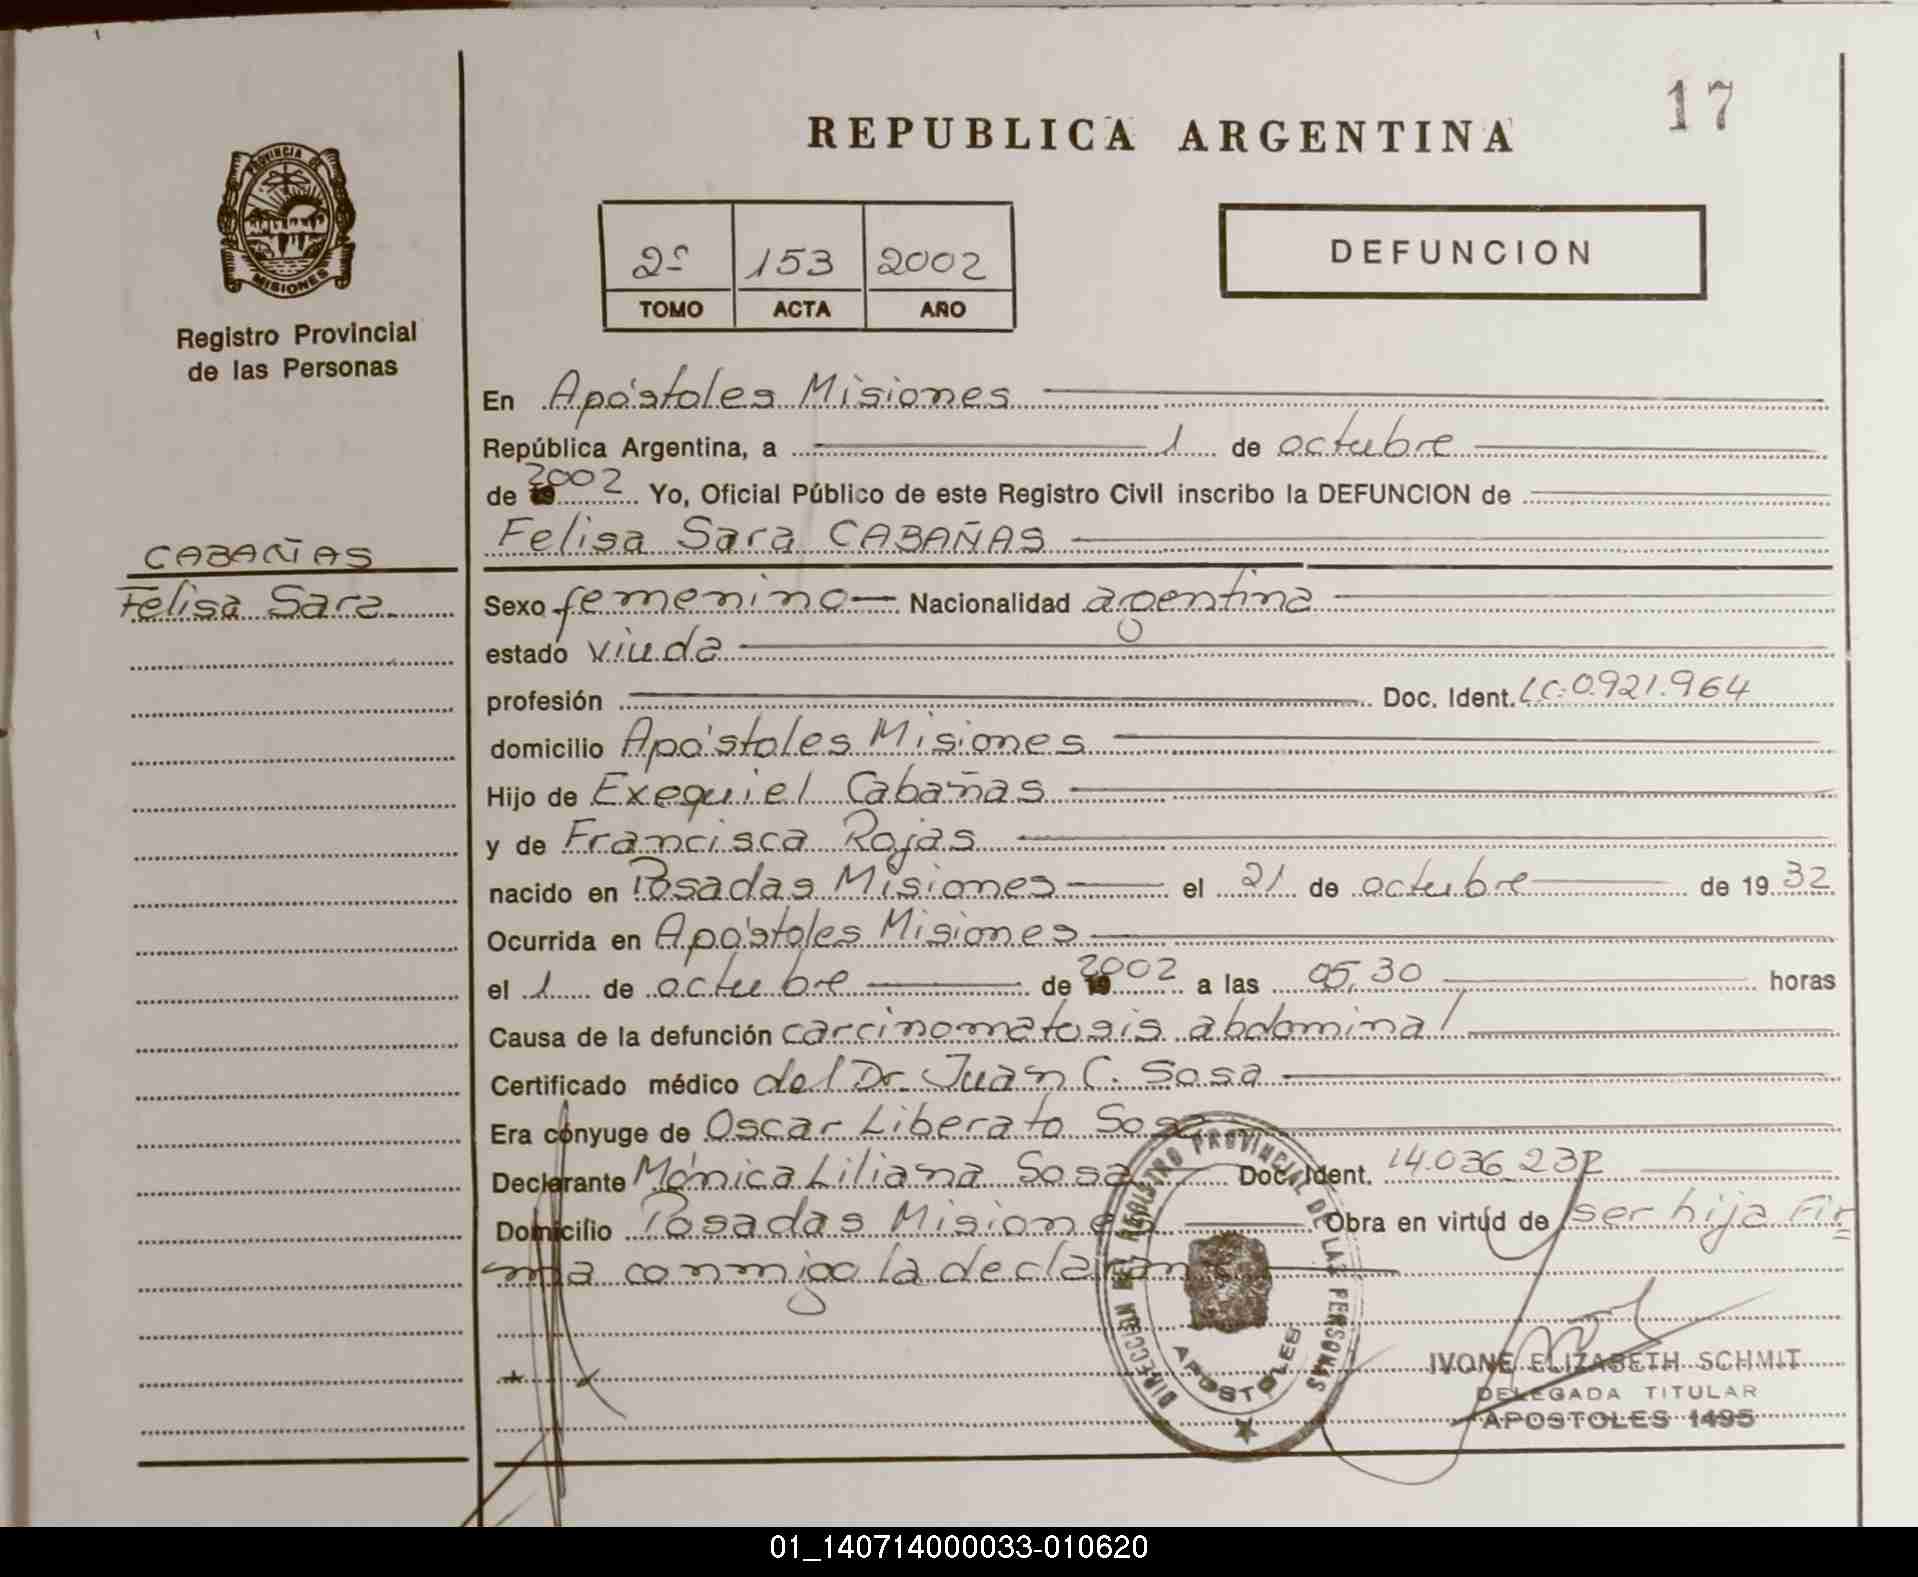 17
REPUBLICA ARGENTINA
PROVINCIA DE
MISIONES
Registro Provincial
de las Personas
2º 153 2002
TOMO ACTA AÑO
DEFUNCION
En Apóstoles Misiones
República Argentina, a 1 de octubre
de 2002 Yo, Oficial Público de este Registro Civil inscribo la DEFUNCION de
Felisa Sara CABAÑAS
CABAÑAS
Felisa Sara
Sexo femenino Nacionalidad argentina
estado viuda
profesión Doc. Ident. LC:0.921.964
domicilio Apóstoles Misiones
Hijo de Exequiel Cabañas
y de Francisca Rojas
nacido en Posadas Misiones el 21 de octubre de 1932
Ocurrida en Apóstoles Misiones
el 1 de octubre de 2002 a las 05,30 horas
Causa de la defunción carcinomatosis abdominal
Certificado médico del Dr. Juan C. Sosa
Era cónyuge de Oscar Liberato Sosa
Declarante Mónica Liliana Sosa Doc. Ident. 14.036.232
Domicilio Posadas Misiones Obra en virtud de ser hija Fir
ma conmigo la declaran
DIRECCION DEL REGISTRO PROVINCIAL DE LAS PERSONAS
APOSTOLES
IVONE ELIZABETH SCHMIT
DELEGADA TITULAR
APOSTOLES 1495
01_140714000033-010620